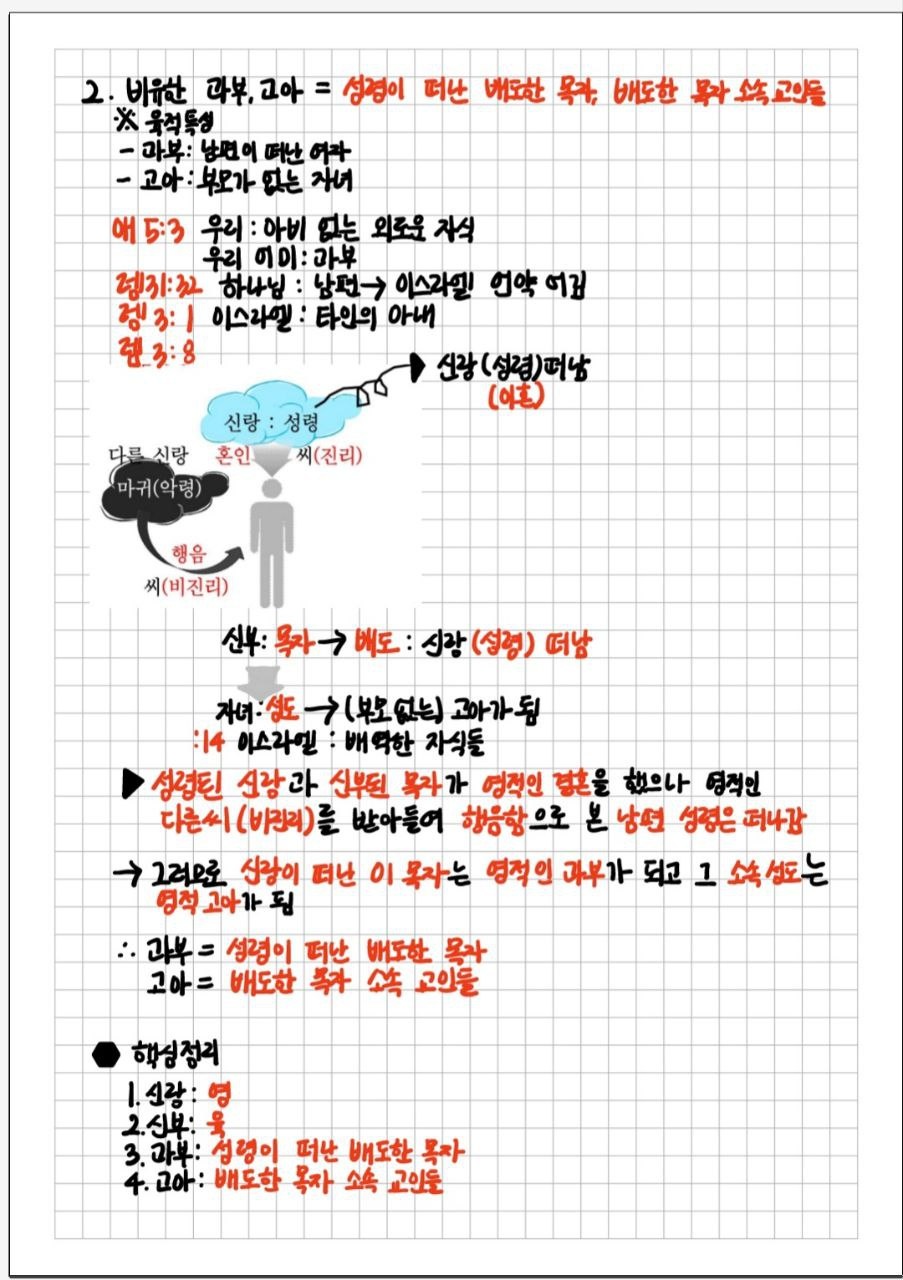 2. 비유한 과부, 고아 = 성령이 떠난 배도한 목자, 배도한 목자 소속 교인들
※ 육적특성
- 과부: 남편이 떠난 여자
- 고아: 부모가 없는 자녀
애 5:3 우리: 아비 없는 외로운 자식
우리 어미: 과부
렘31:32 하나님: 남편→ 이스라엘 언약 어김
렘 3:1 이스라엘: 타인의 아내
렘 3:8
신랑(성령)떠남
(이혼)
신랑 : 성령
다른 신랑 혼인 씨(진리)
마귀(악령)
행음
씨(비진리)
신부: 목자→ 배도: 신랑(성령) 떠남
자녀: 성도→(부모없는) 고아가 됨
:14 이스라엘: 배역한 자식들
▶ 성령된 신랑과 신부된 목자가 영적인 결혼을 했으나 영적인
다른씨(비진리)를 받아들여 행음함으로 본 남편 성령은 떠나감
→ 그러므로 신랑이 떠난 이 목자는 영적인 과부가 되고 그 소속성도는
영적 고아가 됨
∴ 과부 = 성령이 떠난 배도한 목자
고아 = 배도한 목자 소속 교인들
⬢ 핵심정리
1. 신랑: 영
2. 신부: 육
3. 과부: 성령이 떠난 배도한 목자
4. 고아: 배도한 목자 소속 교인들